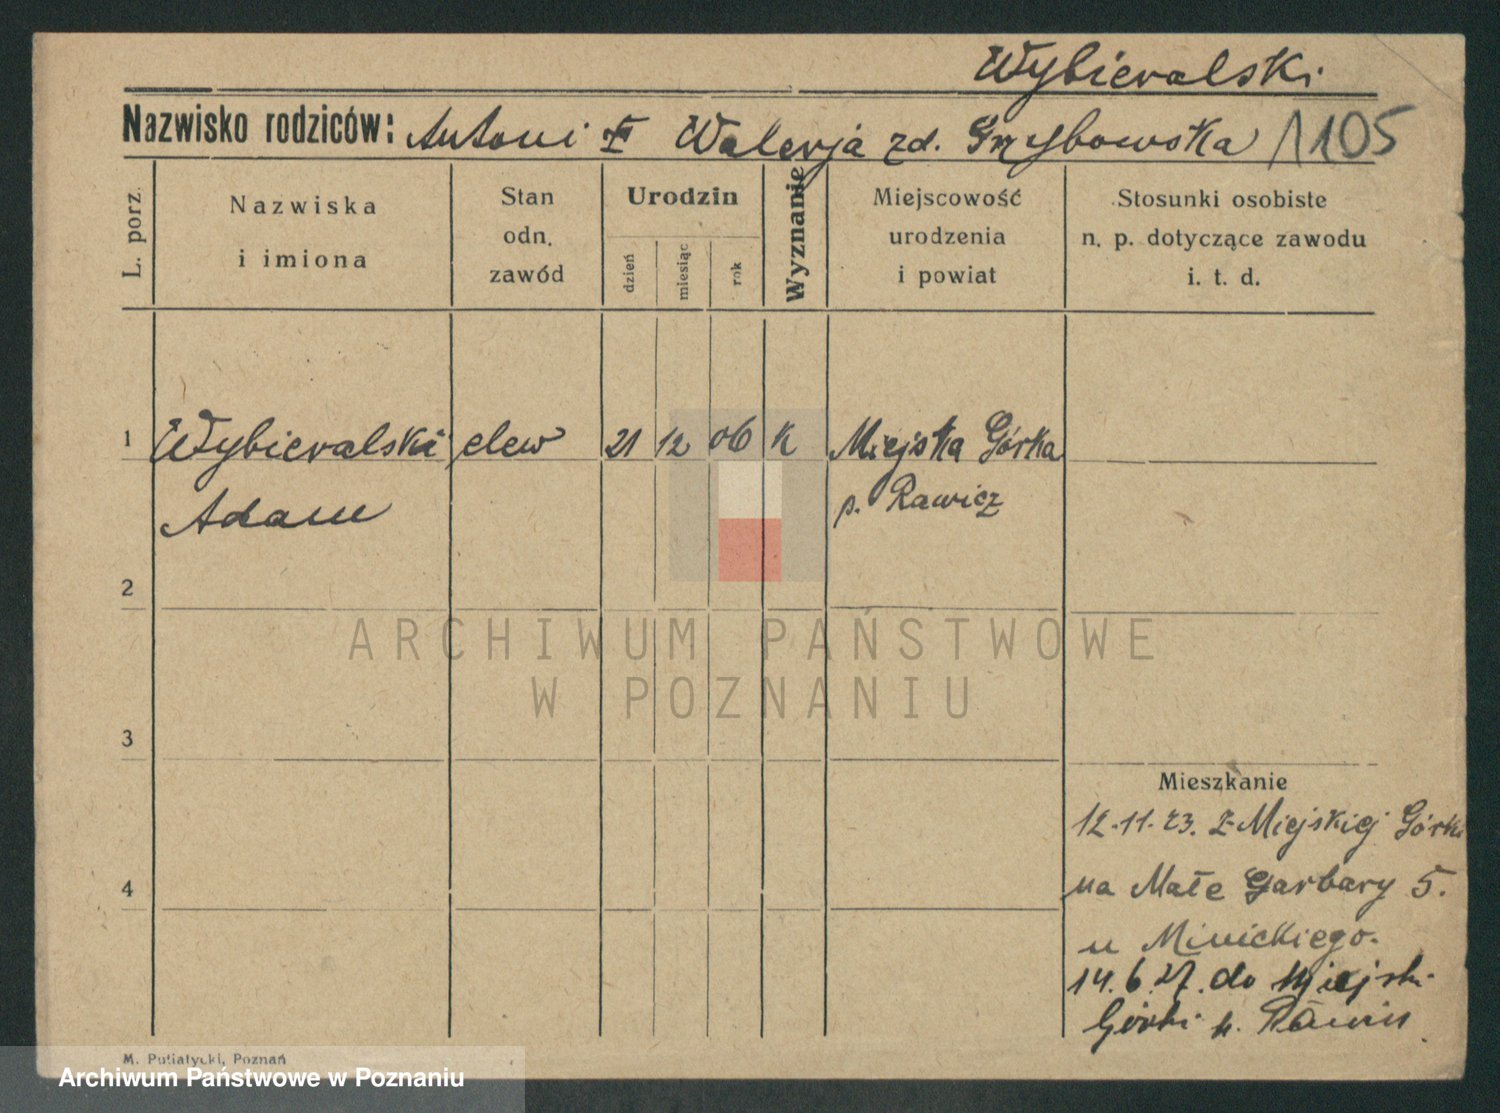 Wybieralski
Nazwisko rodziców: Antoni i Walerja zd. Grzybowska 1105
L. porz.
Nazwiska
i imiona
Stan
odn.
zawód
Urodzin
dzień
miesiąc
rok
Wyznanie
Miejscowość
urodzenia
i powiat
Stosunki osobiste
n. p. dotyczące zawodu
i. t. d.
1 Wybieralski elew 21 12 06 k Miejska Górka
Adam p. Rawicz
2
ARCHIWUM PAŃSTWOWE
W POZNANIU
3
Mieszkanie
12.11.23. z Miejskiej Górki
4
na Małe Garbary 5.
u Minickiego.
14.6.27. do Miejski
Górki p. Rawicz
M. Putiatycki, Poznań
Archiwum Państwowe w Poznaniu